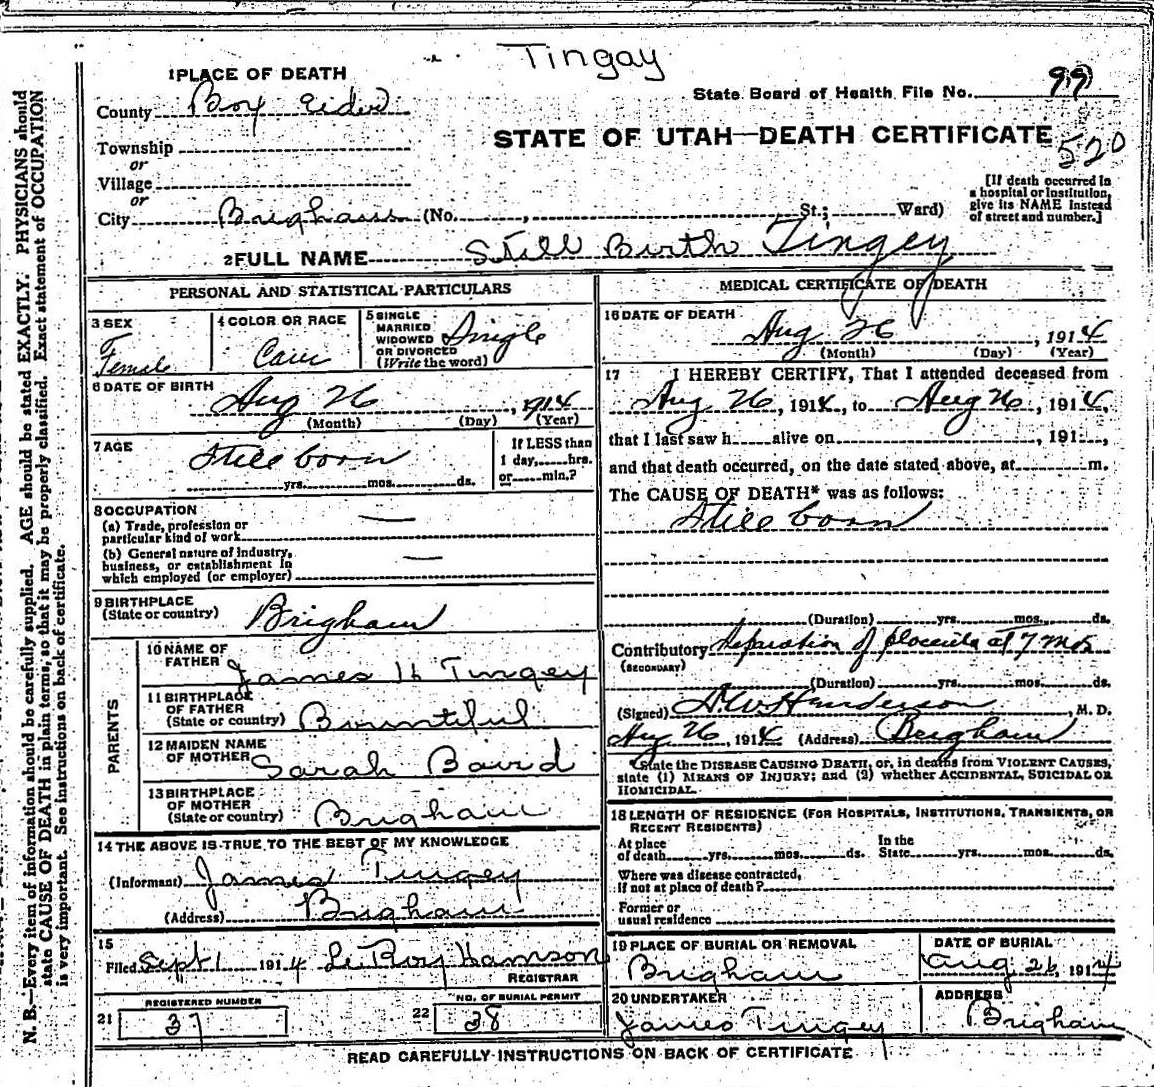 Tingay
1 PLACE OF DEATH
State Board of Health File No. 99
County Box Elder
STATE OF UTAH—DEATH CERTIFICATE 520
Township
or
Village
or
City Brigham (No. , St.; Ward)
[If death occurred in
a hospital or institution,
give its NAME instead
of street and number.]
2 FULL NAME Still Birth Tingey
PERSONAL AND STATISTICAL PARTICULARS
3 SEX
Female
4 COLOR OR RACE
Cau
5 SINGLE
MARRIED
WIDOWED
OR DIVORCED
(Write the word)
Single
6 DATE OF BIRTH
Aug 26, 1914
(Month) (Day) (Year)
7 AGE
Still born
yrs. mos. ds.
If LESS than
1 day, hrs.
or min.?
8 OCCUPATION
(a) Trade, profession or
particular kind of work —
(b) General nature of industry,
business, or establishment in
which employed (or employer) —
9 BIRTHPLACE
(State or country) Brigham
PARENTS
10 NAME OF
FATHER James H Tingey
11 BIRTHPLACE
OF FATHER
(State or country) Bountiful
12 MAIDEN NAME
OF MOTHER Sarah Baird
13 BIRTHPLACE
OF MOTHER
(State or country) Brigham
14 THE ABOVE IS TRUE TO THE BEST OF MY KNOWLEDGE
(Informant) James Tingey
(Address) Brigham
15
Filed Sept 1 1914 Le Roy Hamson
REGISTRAR
REGISTERED NUMBER
21 37
NO. OF BURIAL PERMIT
22 38
MEDICAL CERTIFICATE OF DEATH
16 DATE OF DEATH
Aug 26, 1914
(Month) (Day) (Year)
17 I HEREBY CERTIFY, That I attended deceased from
Aug 26, 1914, to Aug 26, 1914,
that I last saw h alive on , 191 ,
and that death occurred, on the date stated above, at m.
The CAUSE OF DEATH* was as follows:
Still born
(Duration) yrs. mos. ds.
Contributory Separation of placenta at 7 mos
(SECONDARY)
(Duration) yrs. mos. ds.
(Signed) Henderson, M. D.
Aug 26, 1914 (Address) Brigham
*State the DISEASE CAUSING DEATH, or, in deaths from VIOLENT CAUSES,
state (1) MEANS OF INJURY; and (2) whether ACCIDENTAL, SUICIDAL OR
HOMICIDAL.
18 LENGTH OF RESIDENCE (FOR HOSPITALS, INSTITUTIONS, TRANSIENTS, OR
RECENT RESIDENTS)
At place
of death yrs. mos. ds.
In the
State yrs. mos. ds.
Where was disease contracted,
if not at place of death?
Former or
usual residence
19 PLACE OF BURIAL OR REMOVAL
Brigham
DATE OF BURIAL
Aug 26, 1914
20 UNDERTAKER
James Tingey
ADDRESS
Brigham
READ CAREFULLY INSTRUCTIONS ON BACK OF CERTIFICATE
N. B.—Every item of information should be carefully supplied. AGE should be stated EXACTLY. PHYSICIANS should
state CAUSE OF DEATH in plain terms, so that it may be properly classified. Exact statement of OCCUPATION
is very important. See instructions on back of certificate.